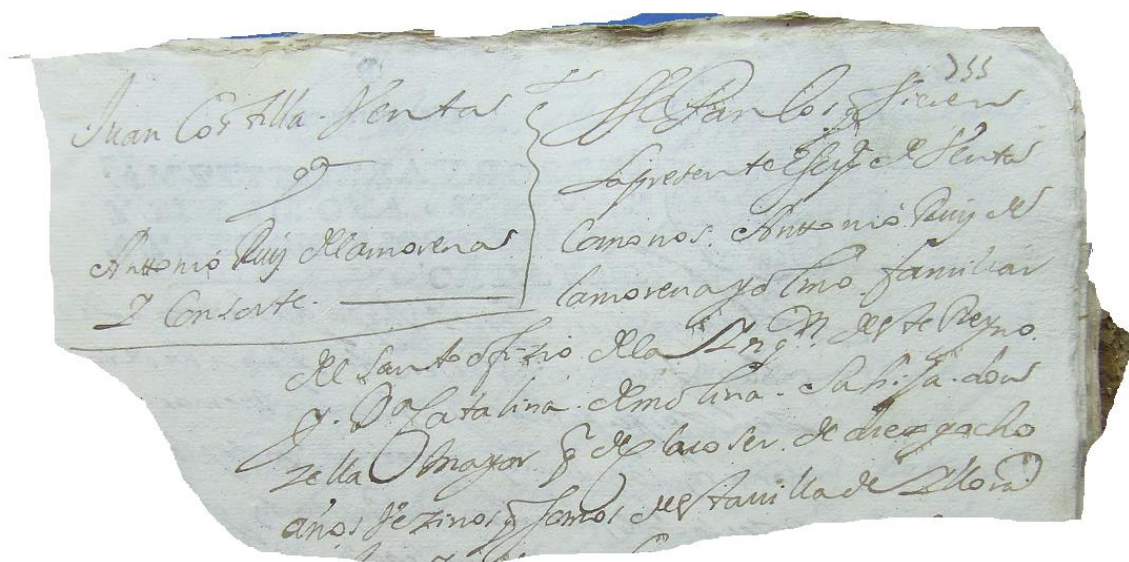 Juan Costilla. Venta
Antonio Ruiz dela morena
Y Consorte.
355
Sepan los q Vieren
la presente Escrip.ª de Venta
Como nos. Antonio Ruiz de
la morena y olmo familiar
del santo ofizio dela Ynq.on deste Reyno.
y. Da Catalina. de molina. Su hija. don
zella mayor q declaro ser de diez y ocho
años Vezinos q somos desta villa de Yllora